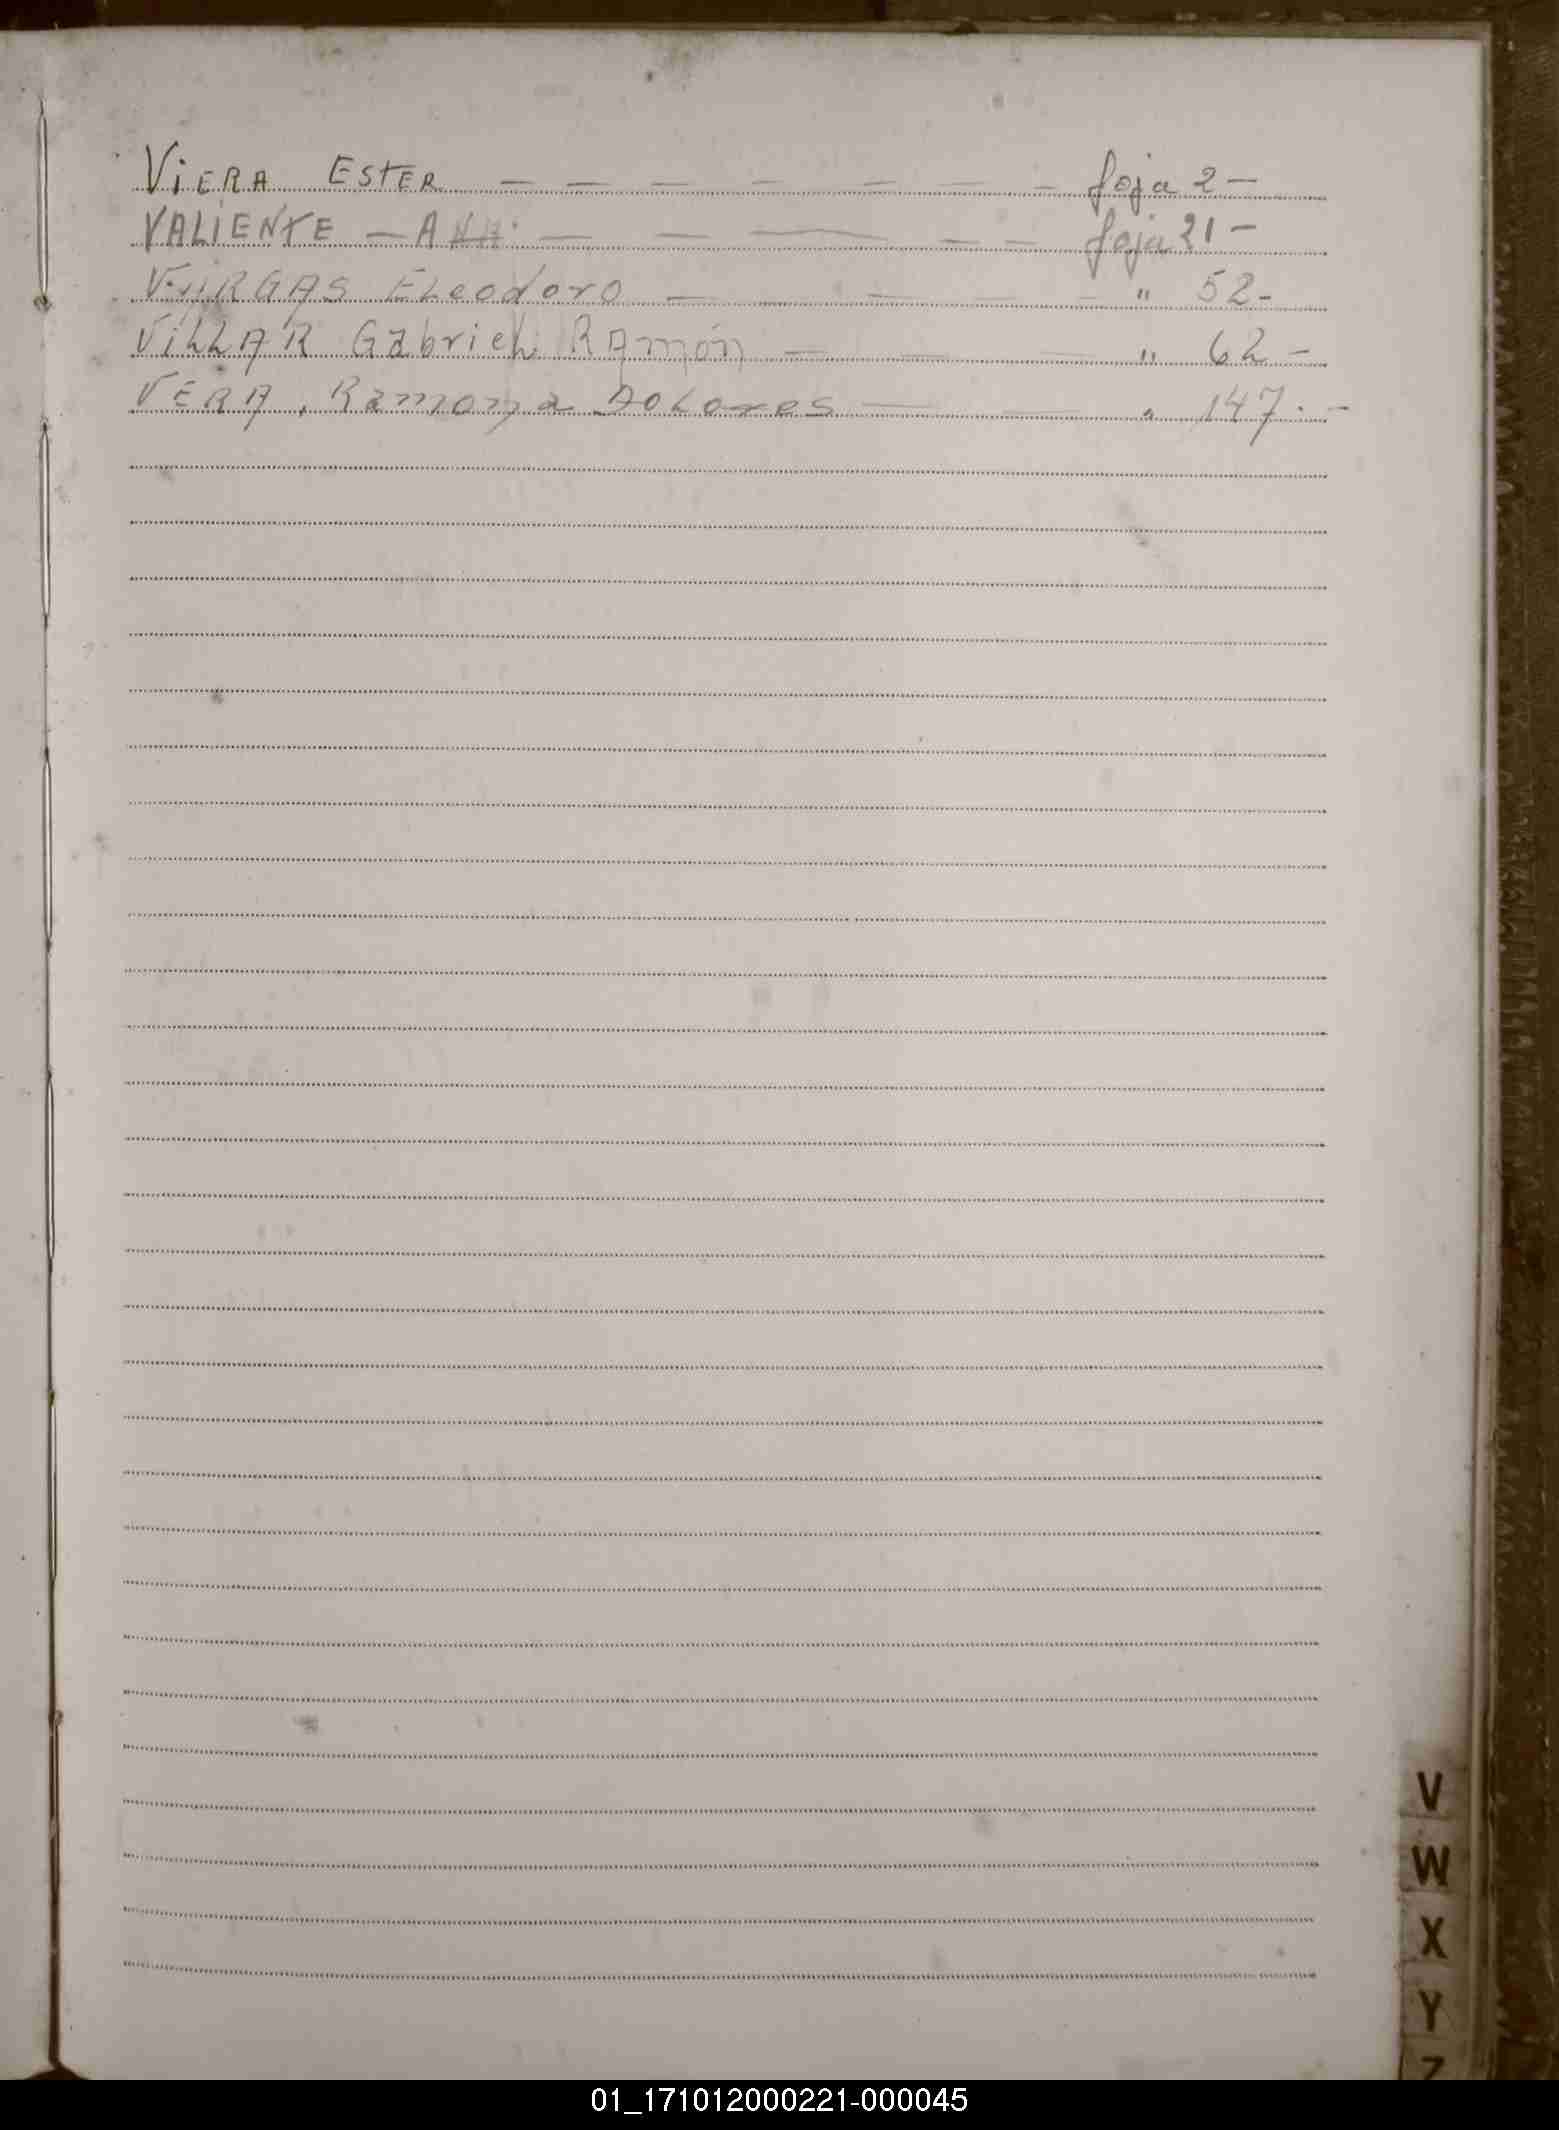 ViERA ESTER — — — — — — — foja 2 —
VALIENTE — ANA. — — — — — foja 21 —
VARGAS ELeodoro — — — — " 52 -
ViLLAR Gabriel RAmón — — — " 62 —
VERA, Ramona DoLores — — " 147. —
V
W
X
Y
Z
01_171012000221-000045